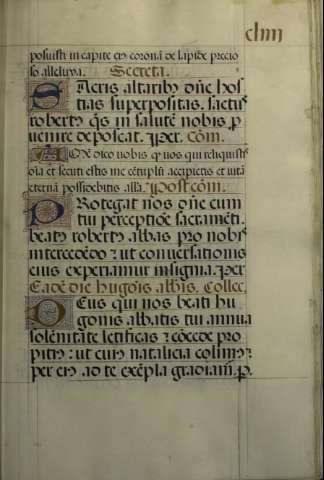 cliiii
posuisti in capite eius coronā de lapide precio
so alleluya. Secreta.
Sacris altaribꝰ dn̄e hos
tias superpositas. sāctꝰ
robertꝰ q̄s in salutē nobis p
uenire deposcat. Per. Cōm.
Amē dico vobis q̄ vos qui reliquistis
oīa et secuti estis me cētuplū accipietis et vitā
eternā possidebitis alla. Postcōm.
Protegat nos dn̄e cum
tui perceptiōe sacramēti.
beatꝰ robertꝰ abbas pro nobis
intercedēdo ⁊ ut conversationis
eius experiamur insignia. Per
Eadē die hugōis abbis. Collec.
Deus qui nos beati hu
gonis abbatis tui annua
solēnitate letificas ⁊ cōcede pro
pitiꝰ: ut cuiꝰ natalicia colimꝰ:
per eiꝰ ad te exēpla gradiamr̄. p.